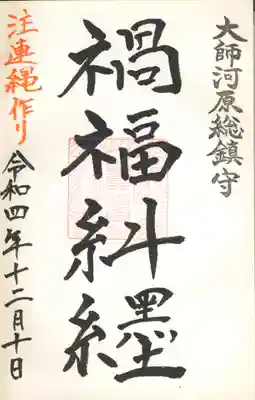 大師河原総鎮守
禍福糾纆
注連縄作り
令和四年十二月十日